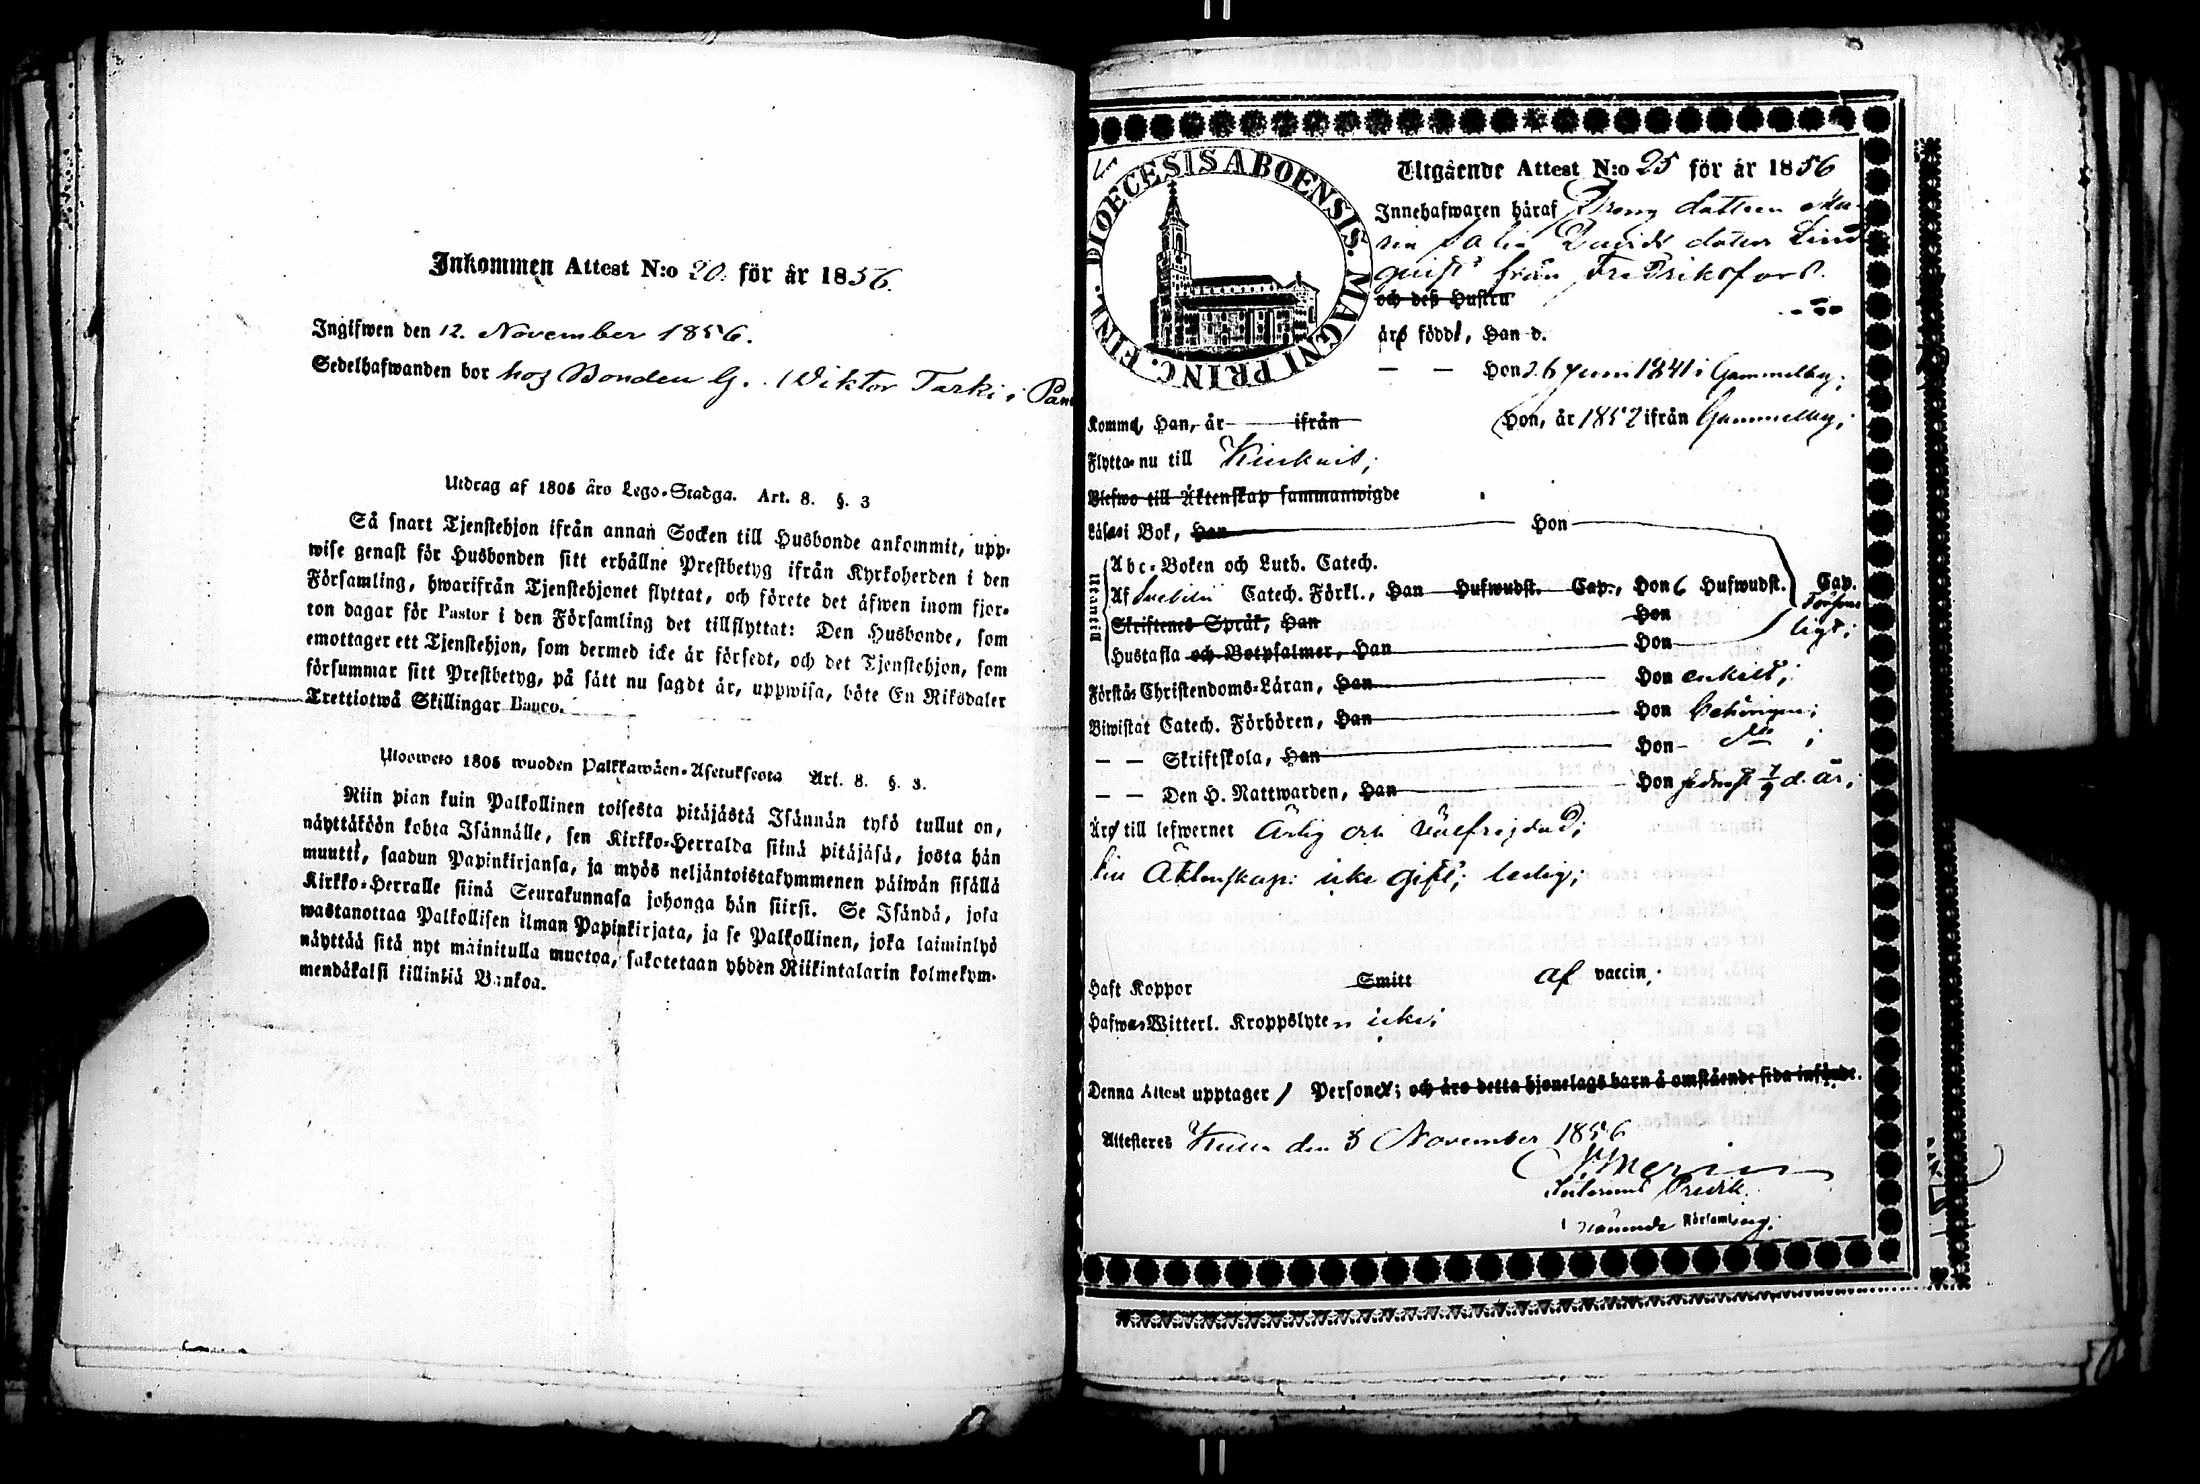 Inkommen Attest N:o 20. för år 1856.
Ingifwen den 12. November 1856.
Sedelhafwanden bor hos Bonden G. Wiktor Tarki i
Utdrag af 1805 års Lego-Stadga. Art. 8. §. 3
Så snart Tjenstehjon ifrån annan Socken till Husbonde ankommit, upp-
wise genast för Husbonden sitt erhållne Prestbetyg ifrån Kyrkoherden i den
Församling, hwarifrån Tjenstehjonet flyttat, och förete det äfwen inom fjor-
ton dagar för Pastor i den Församling det tillflyttat: Den Husbonde, som
emottager ett Tjenstehjon, som dermed icke är försedt, och det Tjenstehjon, som
försummar sitt Prestbetyg, på sätt nu sagdt är, uppwisa, böte En Riksdaler
Trettiotwå Skillingar Banco.
Ulosweto 1805 wuoden Palkkawäen-Asetuksesta Art. 8. §. 3.
Niin pian kuin Palkollinen toisesta pitäjästä Isännän tykö tullut on,
näyttäköön kohta Isännälle, sen Kirkko-Herralda siinä pitäjäsä, josta hän
muutti, saadun Papinkirjansa, ja myös neljäntoistakymmenen päiwän sisällä
Kirkko-Herralle siinä Seurakunnasa johonga hän siirsi. Se Isändä, joka
wastanottaa Palkollisen ilman Papinkirjata, ja se Palkollinen, joka laiminlyö
näyttää sitä nyt mainitulla muotoa, sakotetaan yhden Riikintalarin kolmekym-
mendäkaksi killinkiä Bankoa.
DIOECESIS ABOENSIS. MAGNI PRINC. FINL.
Utgående Attest N:o 25 för år 1856
Innehafwaren häraf Dreng dottren Ma-
ria Davids dotter Lind
quist från Fredriksfors.
och deß Hustru
äro född, Han d.
— — Hon d. 6 Juni 1841 i Gammelby;
Komm, Han, år ifrån Hon, år 1852 ifrån Gammelby;
Flytta nu till Kiukais;
Blefwo till Äktenskap sammanwigde
Läsa i Bok, Han Hon
Utantill
Abc-Boken och Luth. Catech.
Af Svebilii Catech. Förkl., Han Hufwudst. Cap., Hon 6 Hufwudst. Cap.
Skriftenes Språk, Han Hon
Hustafla och Botpsalmer, Han Hon
Förstå Christendoms-Läran, Han Hon enkelt;
Biwistat Catech. Förhören, Han Hon behörigen;
— — Skriftskola, Han Hon do;
— — Den H. Nattwarden, Han Hon sednast d. år;
Äro till lefwernet Ärlig och välfrejdad;
till Äktenskap: icke gift; ledig;
Haft Koppor Smitt af vaccin;
Hafwa Witterl. Kroppslyten icke;
Denna Attest upptager 1 Person; och äro detta hjonelags barn å omstående sida införde.
Attesteres den 3 November 1856
Predik.
nämnde Församling.